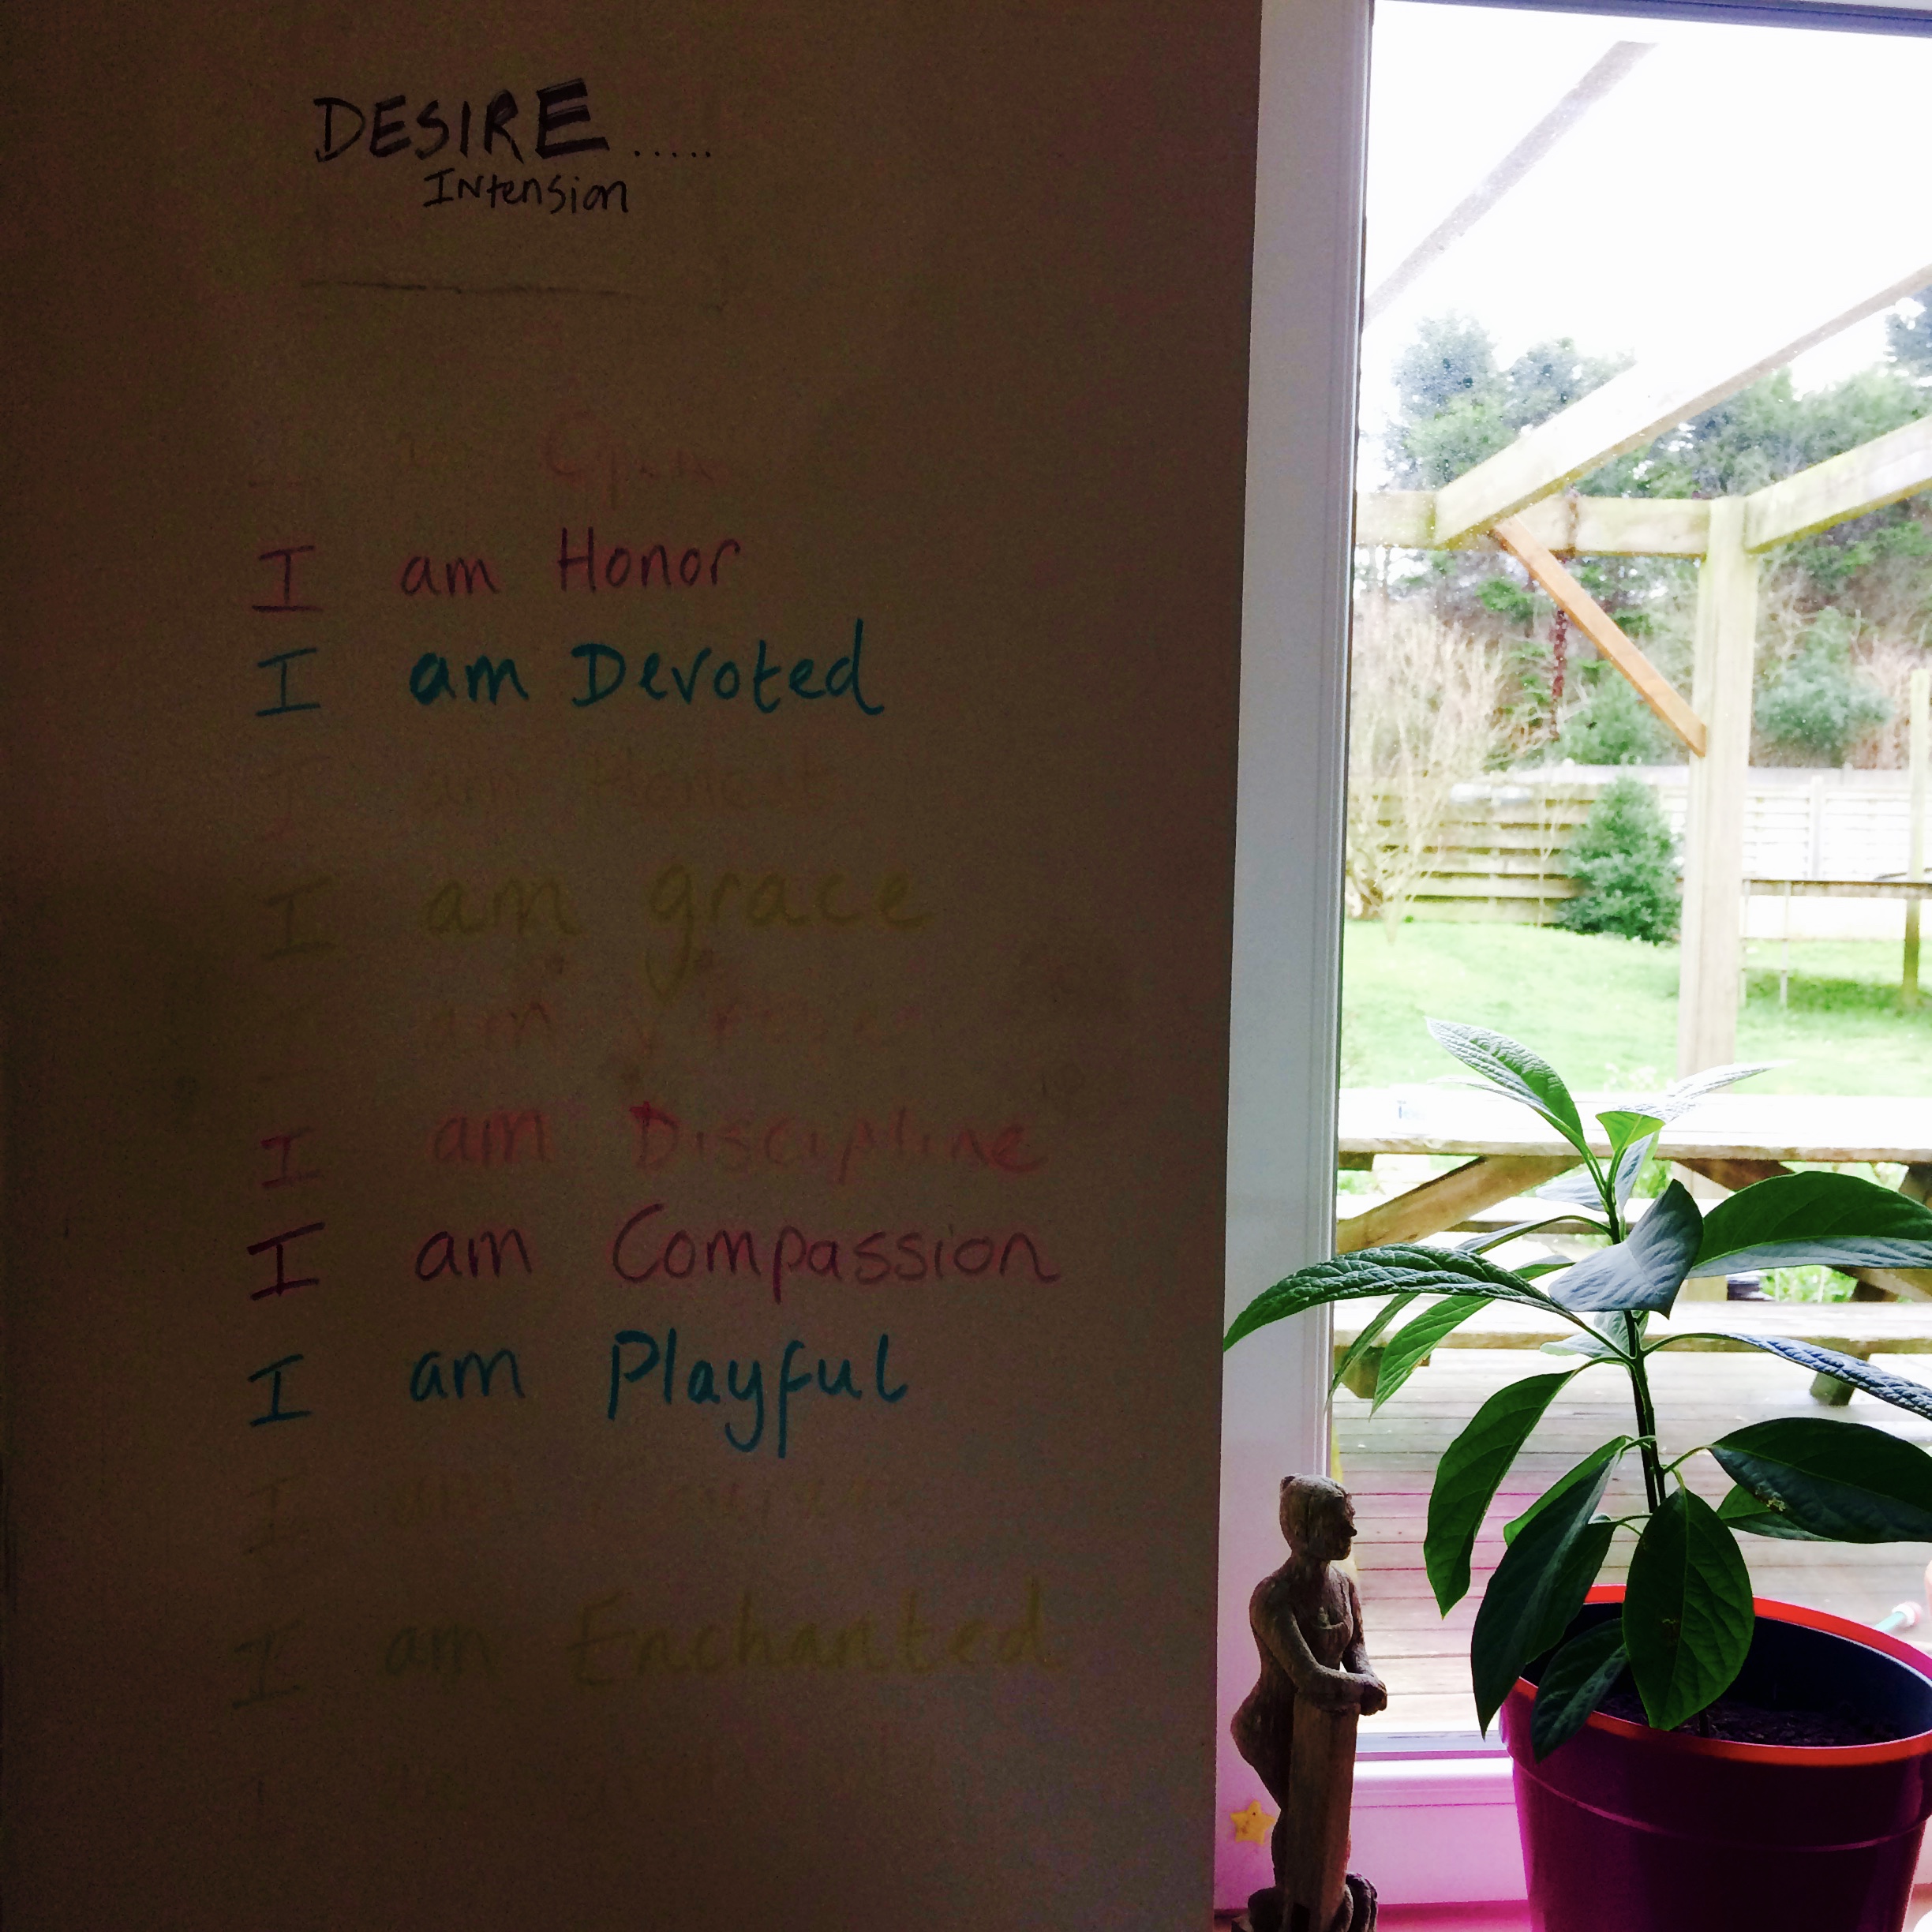 DESIRE.....
INtension
I am Honor
I am Devoted
I am Honest
I am grace
am
I am Discipline
I am Compassion
I am Playful
I
I am Enchanted
I